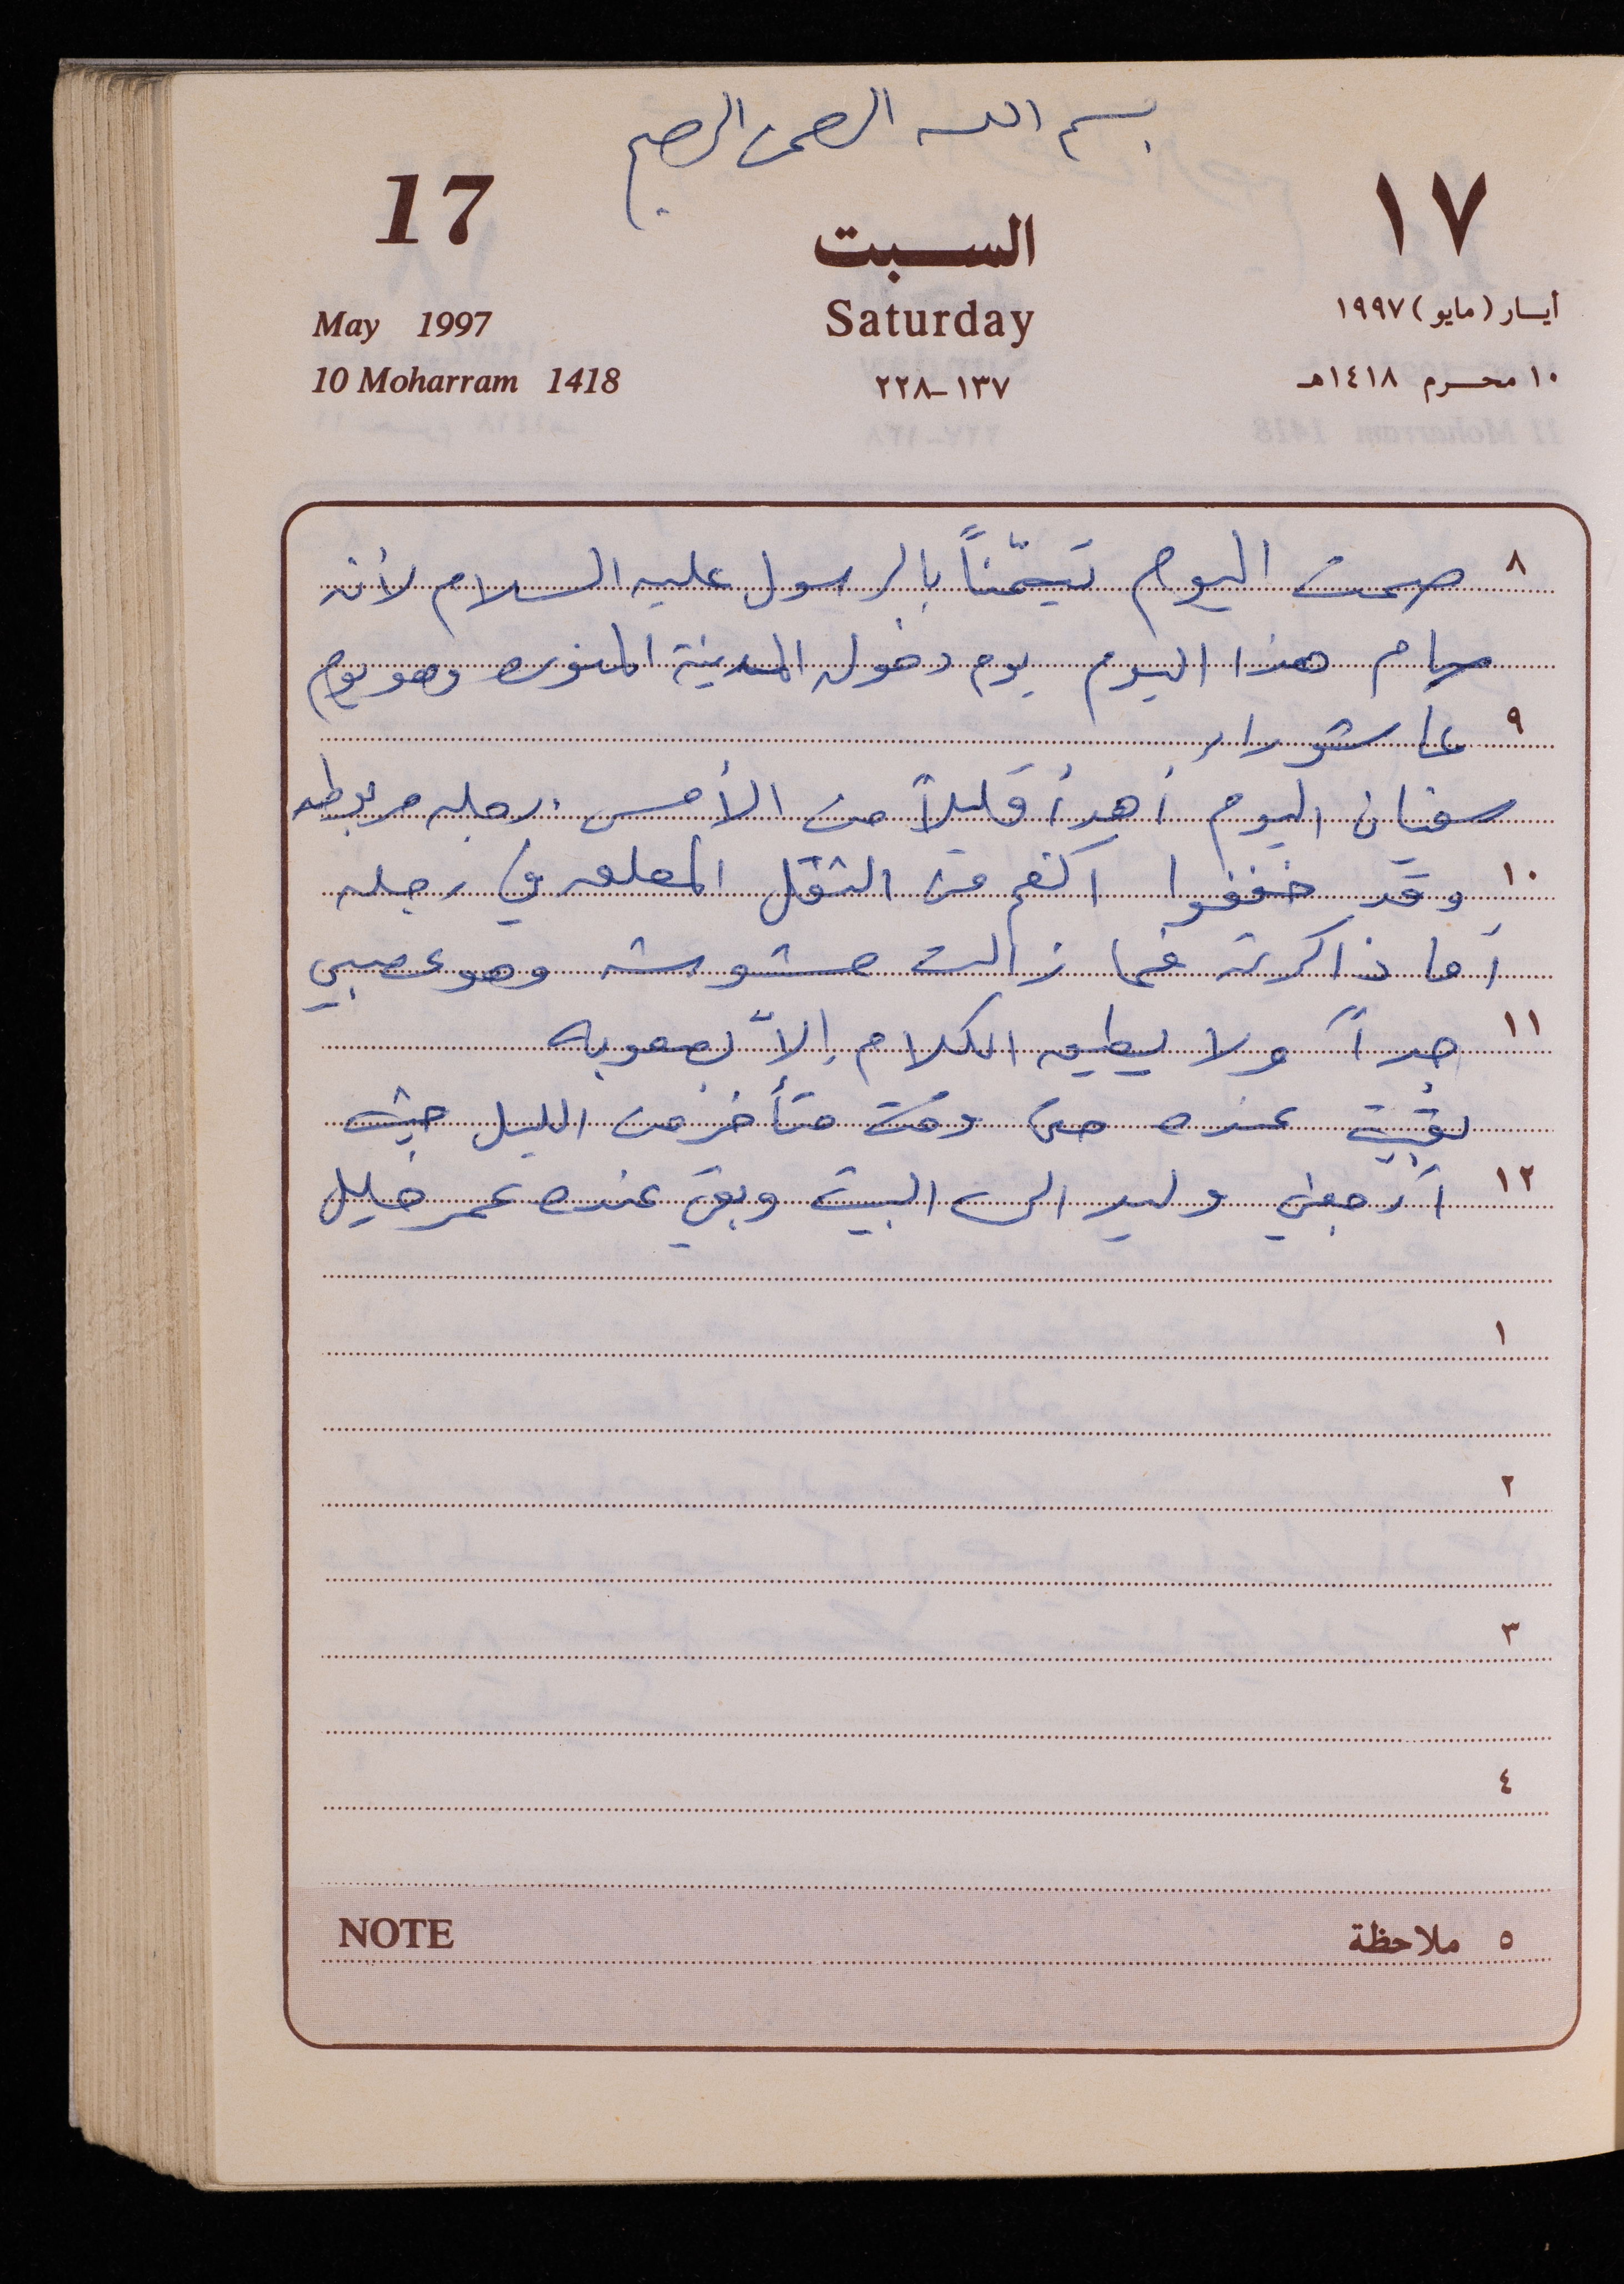 بسم الله الرحمن الرحيم
17
السبت
١٧
May 1997
Saturday
أيار (مايو) ١٩٩٧
10 Moharram 1418
١٣٧-٢٢٨
١٠ محرم ١٤١٨هـ
٨ صمت اليوم تيمّناً بالرسول عليه السلام لأنه
صام هذا اليوم يوم دخوله المدينة المنوره وهو يوم
٩ عاشوراء
سفيان اليوم أهدأ قليلاً من الأمس. رجله مربوطه
١٠ وقد خففوا ٢ كغم من الثقل المعلق في رجله
أما ذاكرته فما زالت مشوشه وهو عصبي
١١ جداً ولا يطيق الكلام إلاّ بصعوبه
بقيت عنده حتى وقت متأخر من الليل حيث
١٢ أرجعني وليد الى البيت وبقي عنده عمر خليل
١
٢
٣
٤
NOTE
٥ ملاحظة